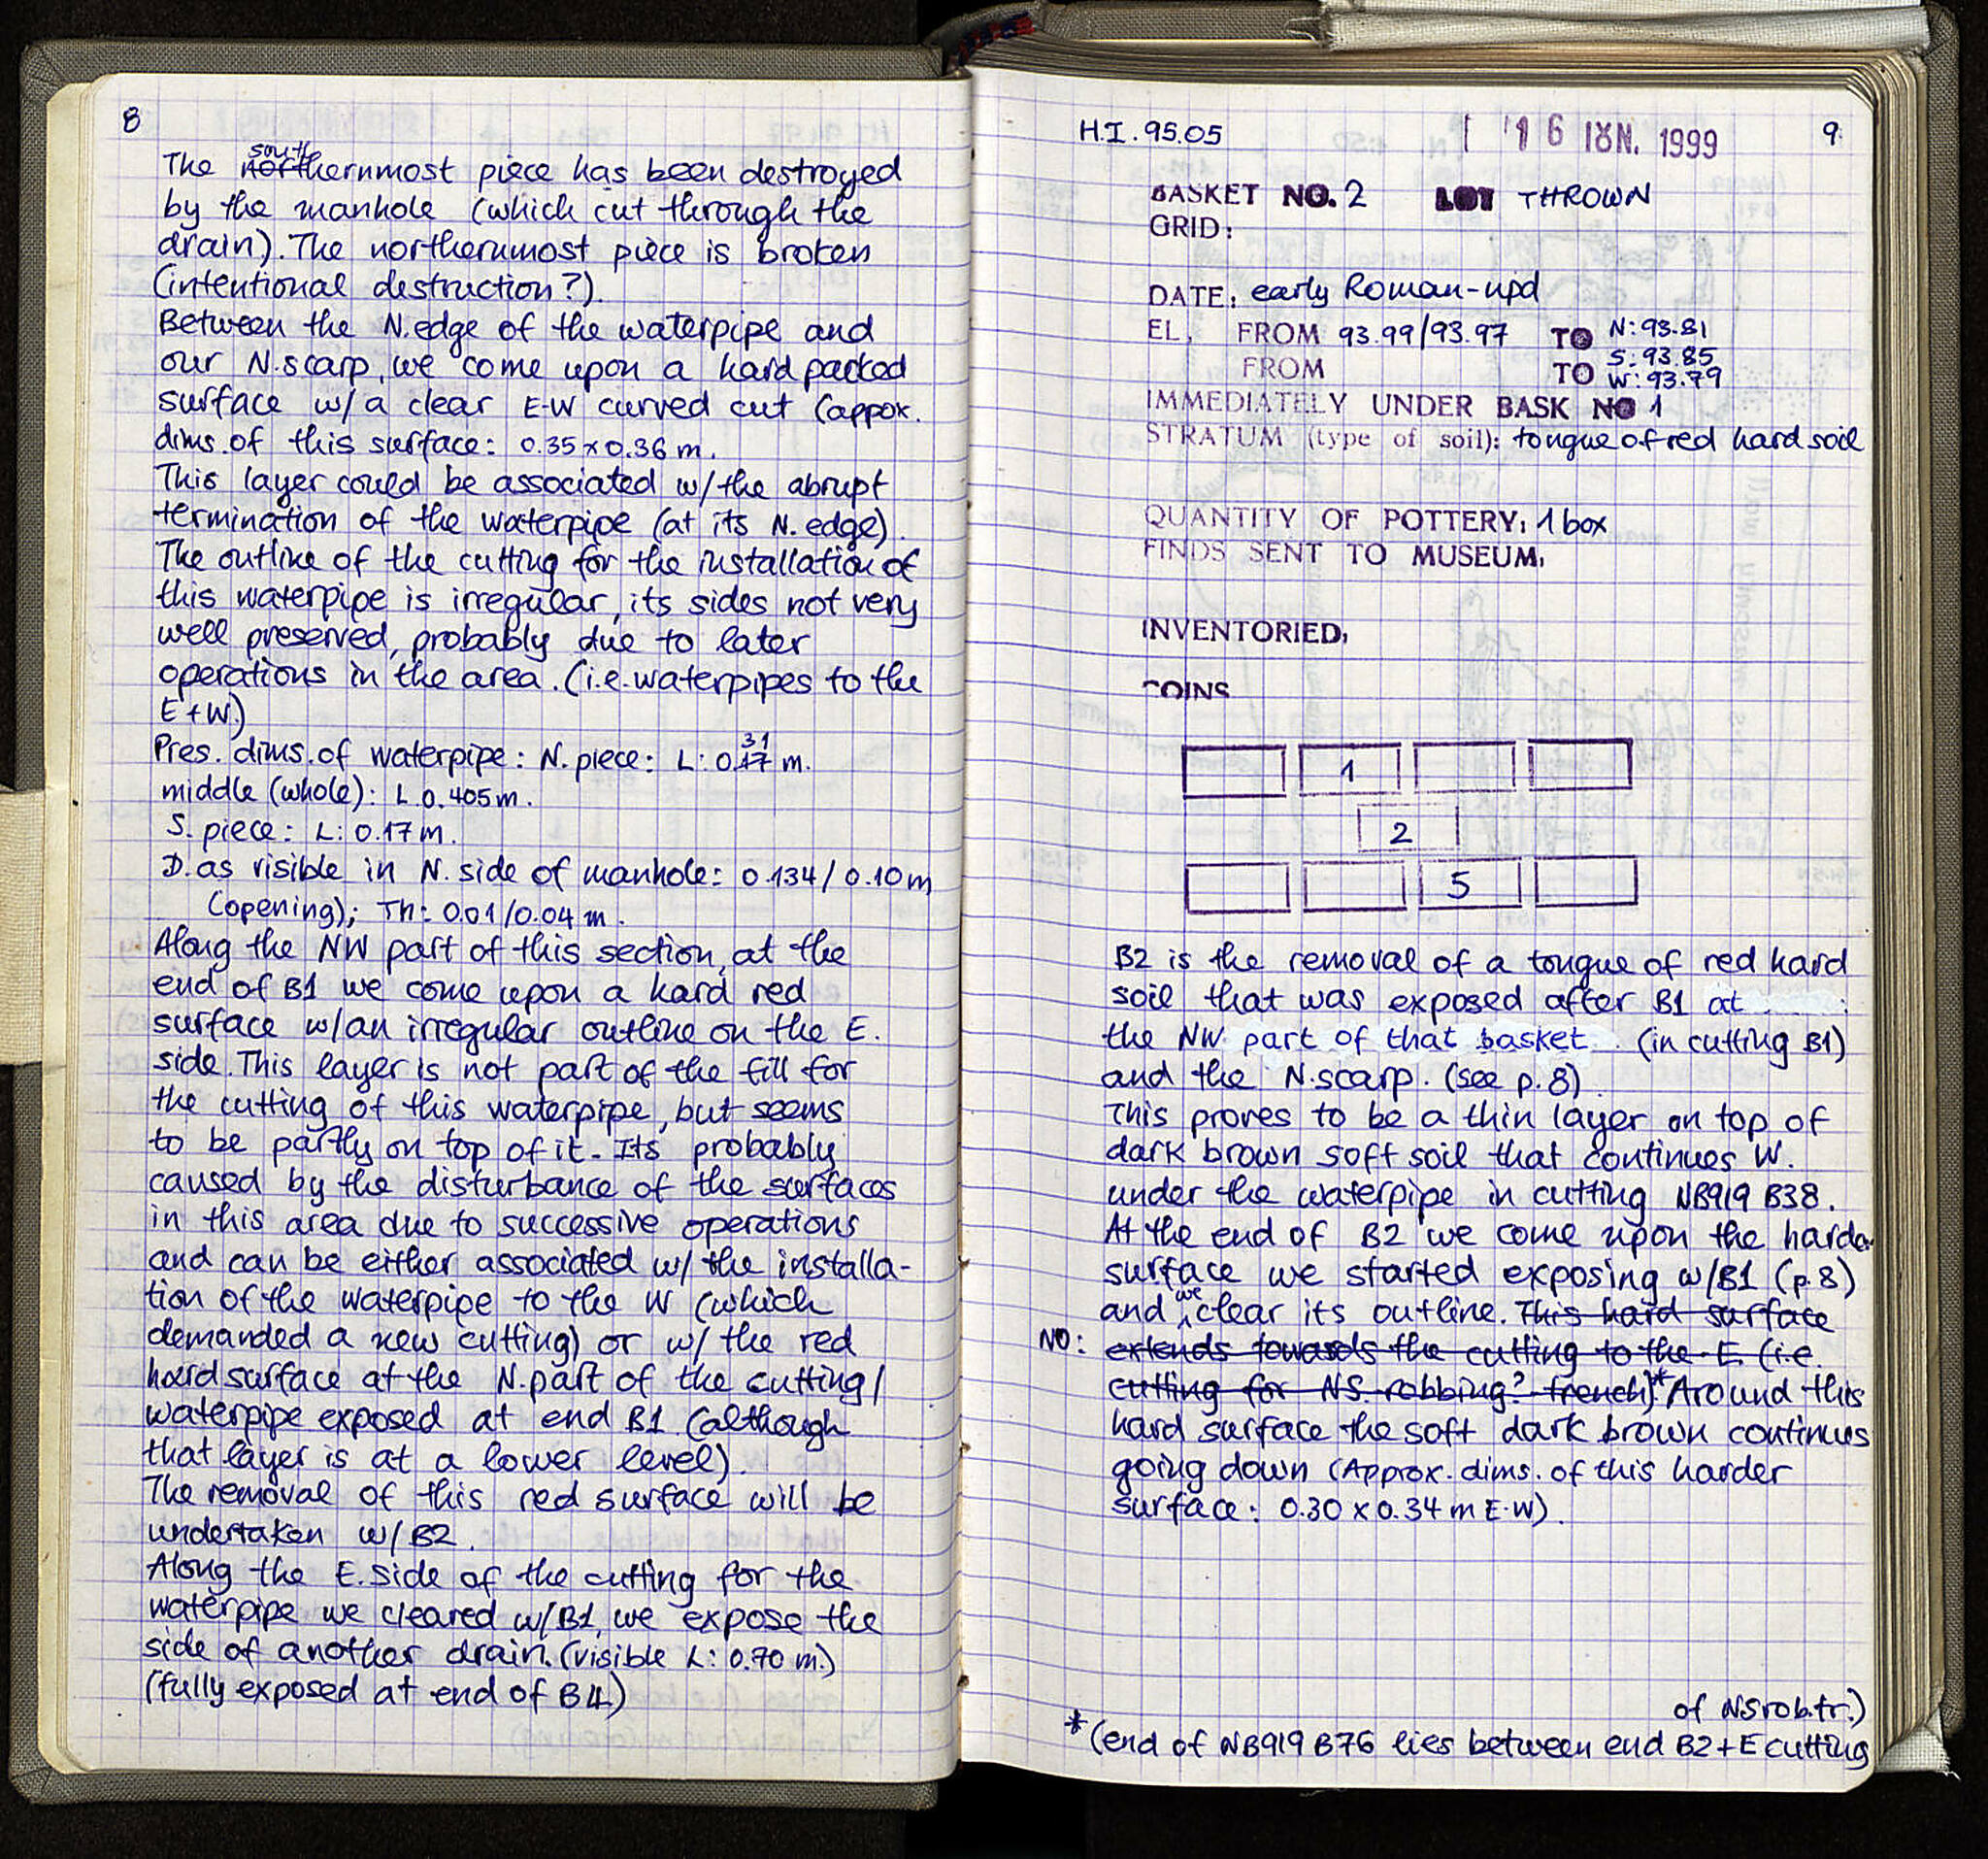 8
The southernmost piece has been destroyed
by the manhole (which cut through the
drain). The northernmost piece is broken
(intentional destruction?).
Between the N.edge of the waterpipe and
our N.scarp, we come upon a hard packed
surface w/a clear E-W curved cut (appox.
dims. of this surface: 0.35 x 0.36 m.
This layer could be associated w/the abrupt
termination of the waterpipe (at its N.edge).
The outline of the cutting for the installation of
this waterpipe is irregular, its sides not very
well preserved, probably due to later
operations in the area. (i.e. waterpipes to the
E+W.)
Pres. dims. of waterpipe: N. piece: L: 0.31 m.
middle (whole): L 0.405m.
S. piece: L: 0.17m.
D. as visible in N. side of manhole: 0.134/0.10m
(opening); Th: 0.01/0.04 m.
Along the NW part of this section, at the
end of B1 we come upon a hard red
surface w/an irregular outline on the E.
side. This layer is not part of the fill for
the cutting of this waterpipe, but seems
to be partly on top of it. Its probably
caused by the disturbance of the surfaces
in this area due to successive operations
and can be either associated w/ the installa-
tion of the waterpipe to the W (which
demanded a new cutting) or w/ the red
hard surface at the N.part of the cutting/
waterpipe exposed at end B1 (although
that layer is at a lower level).
The removal of this red surface will be
undertaken w/B2.
Along the E. side of the cutting for the
waterpipe we cleared w/B1, we expose the
side of another drain. (visible L: 0.70 m.)
(fully exposed at end of B4)
H.I. 95.05
16 IOYN. 1999
9
BASKET NO. 2 LOT THROWN
GRID:
DATE: early Roman-upd
EL. FROM 93.99/93.97 TO N: 93.81
S: 93.85
FROM TO W: 93.79
IMMEDIATELY UNDER BASK NO 1
STRATUM (type of soil): tongue of red hard soil
QUANTITY OF POTTERY: 1 box
FINDS SENT TO MUSEUM:
INVENTORIED:
COINS
1
2
5
B2 is the removal of a tongue of red hard
soil that was exposed after B1 at
the NW part of that basket (in cutting B1)
and the N.scarp. (see p.8)
This proves to be a thin layer on top of
dark brown soft soil that continues W.
under the waterpipe in cutting NB919 B38.
At the end of B2 we come upon the harder
surface we started exposing w/B1 (p.8)
and we clear its outline. This hard surface
NO: extends towards the cutting to the E. (i.e.
cutting for NS. robbing? trench)* Around this
hard surface the soft dark brown continues
going down (Approx. dims. of this harder
surface: 0.30 x 0.34 m E-W).
of NS rob.tr.)
*(end of NB919 B76 lies between end B2+E cutting